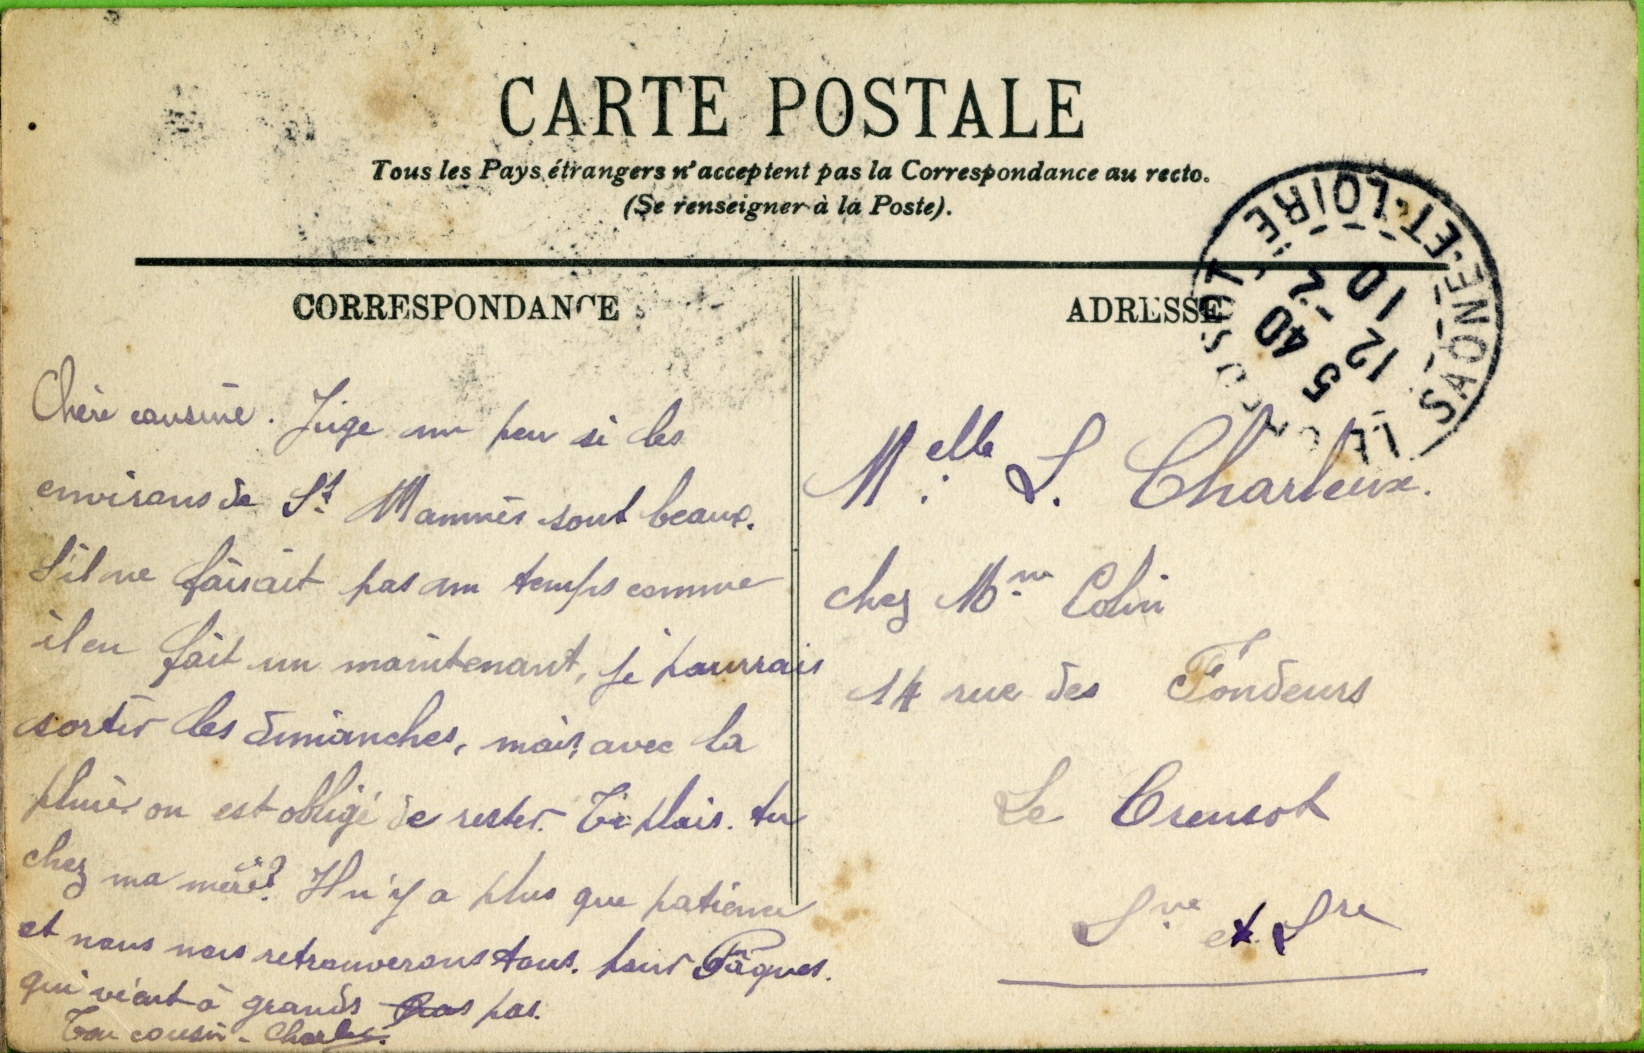 CARTE POSTALE
Tous les Pays étrangers n'acceptent pas la Correspondance au recto.
(Se renseigner à la Poste).
CORRESPONDANCE
Chère cousine. Juge un peu si les
environs de St. Mammès sont beaux.
S'il ne faisait pas un temps comme
il en fait un maintenant, je pourrais
sortir les dimanches, mais, avec la
pluie on est obligé de rester. Te plais-tu
chez ma mère? Il n'y a plus que patience
et nous nous retrouverons tous. pour Pâques.
qui vient à grands pas.
Ton cousin - Charles.
ADRESSE
LE CREUSOT SAONE-ET-LOIRE
5 40
12 - 2
10
Melle L. Charleux.
chez Mme Colin
14 rue des Fondeurs
Le Creusot
Sne et Lre